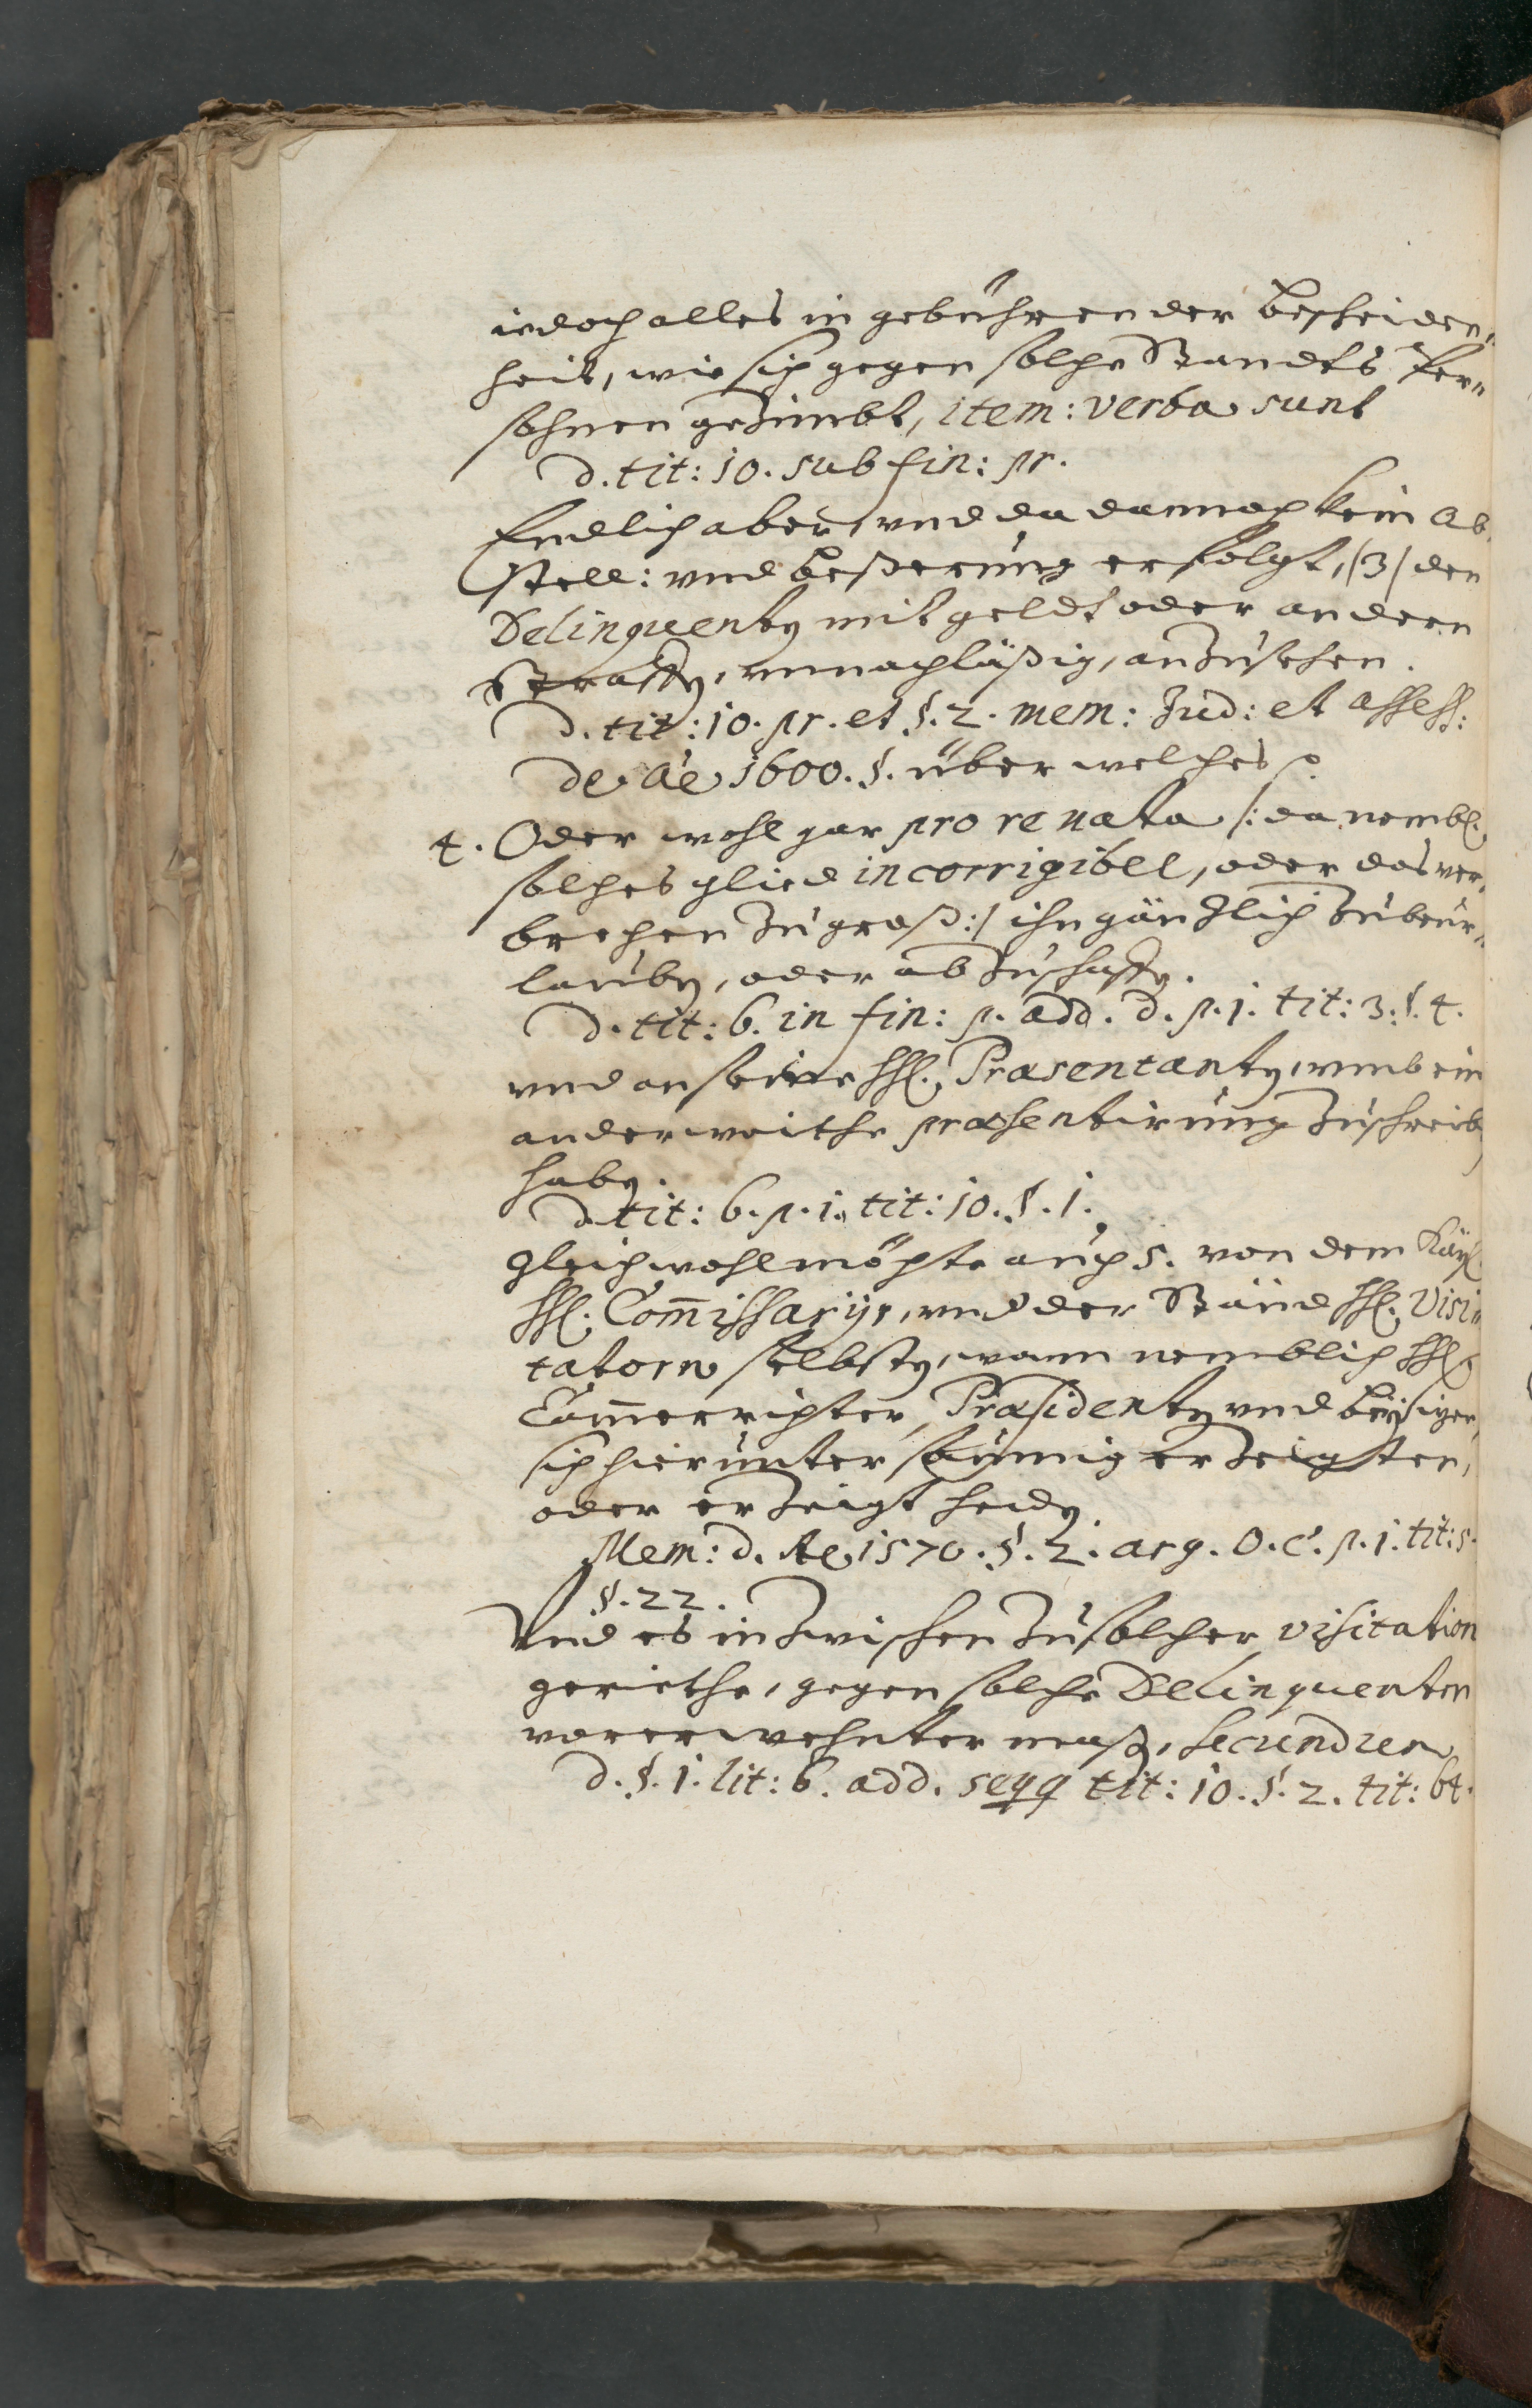 iedoch alles in gebührender bescheiden„
heit, wie sich gegen solche Standts Per„
sohnen geZimbt, item: verba sunt
d. tit: 10. sub fin: pr.
Endlich aber, vnd da dannoch kein Ab„
stell: vnd beßerung erfolgt, (3) den
Delinquenten mit geldt oder andern
Straffen, vnnachläßig, anZusehen.
d. tit: 10. pr. et §. 2. mem: Jud: et assess:
de Ao 1600. §. über welches p
4. Oder wohl gar pro re nata /: da nembl.
solches glied incorrigibel, oder das ver„
brechen Zu groß :/ ihn gänZlich Zu beur„
lauben, oder abZuschaffen.
d. tit: 6. in fin: p. add. d. p. 1. tit: 3. §. 4.
vnd an seine hh. Præsentanten, vmb ein
anderweithe præsentirung Zuschreiben
haben.
d. tit: 6. p. 1. tit: 10. §. 1.
Gleichwohl möchte auch 5. von dem Kays.
hh. Com̅issarijs, vnd der Ständ hh. Visi„
tatorn selbsten, wann nemblich hh.
Cam̅errichter, Præsidenten vnd beysizer,
sich hierunter säumig erZeigten,
oder erZeigt hedten.
Mem: d. Ao 1570. §. 2. arg. O. C. p. 1. tit: 5.
§. 22.
Vnd es inZwischen Zu solcher visitation
geriethe, gegen solche Delinquenten
vorerwehnter maßen, secundum
d. §. 1. lit: 6. add. seqq tit: 10. §. 2. tit: 64.